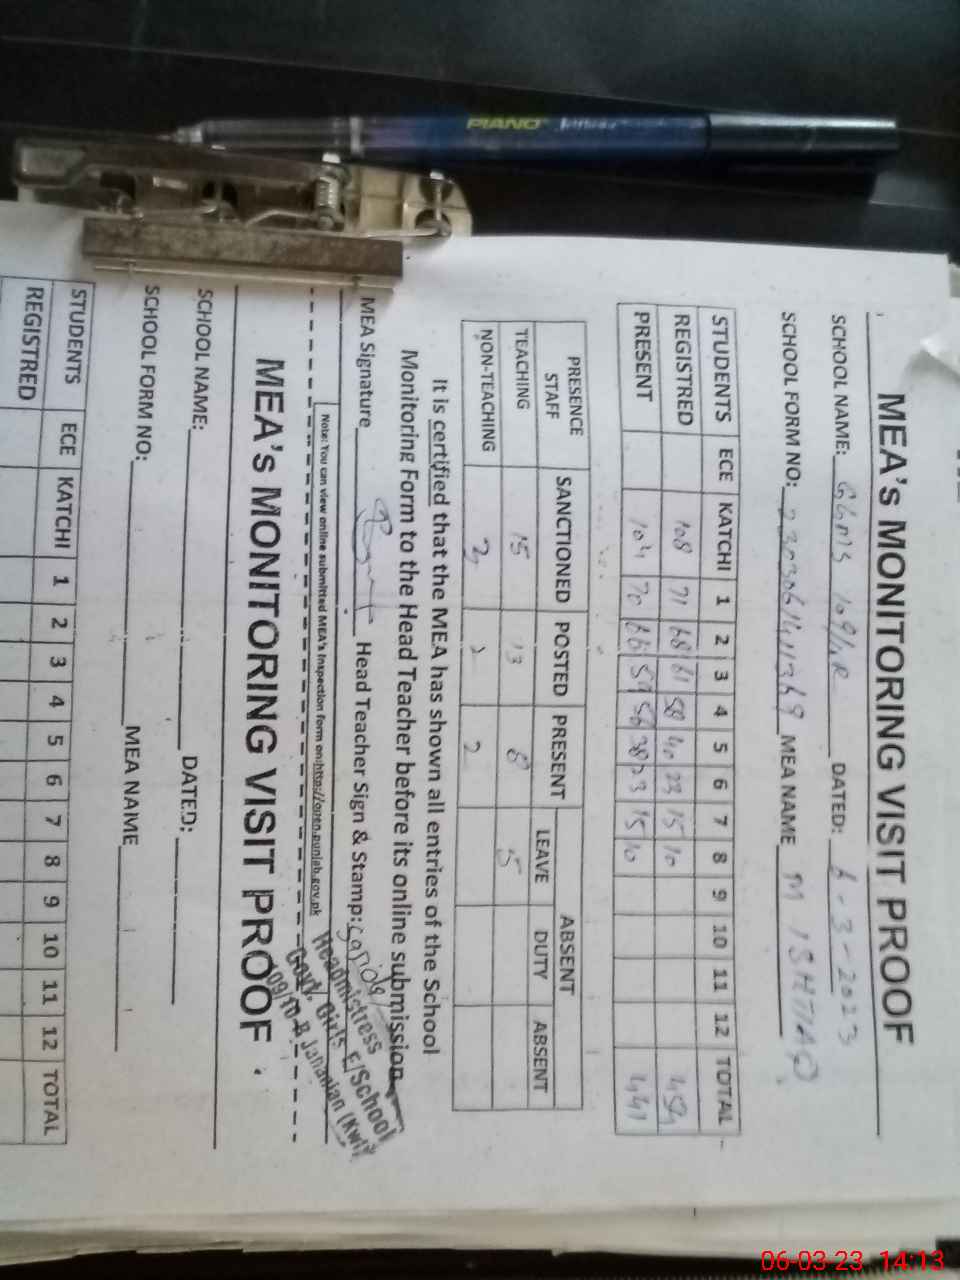 PIANO
MEA's MONITORING VISIT PROOF
SCHOOL NAME: 109/10R DATED: 6-3-2023
SCHOOL FORM NO: MEA NAME M ISHTIAQ
STUDENTS ECE KATCHI 1 2 3 4 5 6 7 8 9 10 11 12 TOTAL
REGISTRED 108 71 68 61 58 40 23 15 10 454
PRESENT 104 70 66 59 56 38 23 15 10 441
PRESENCE STAFF SANCTIONED POSTED PRESENT ABSENT
LEAVE DUTY ABSENT
TEACHING 15 13 8 5
NON-TEACHING 2 2
It is certified that the MEA has shown all entries of the School
Monitoring Form to the Head Teacher before its online submission
MEA Signature Head Teacher Sign & Stamp:
Headmistress
Govt. Girls E/School
109/10-R Jahanian (Kwl)
Note: You can view online submitted MEA's Inspection form on:http://open.punjab.gov.pk
MEA's MONITORING VISIT PROOF
SCHOOL NAME: DATED:
SCHOOL FORM NO: MEA NAME
STUDENTS ECE KATCHI 1 2 3 4 5 6 7 8 9 10 11 12 TOTAL
REGISTRED
06-03-23 14:13